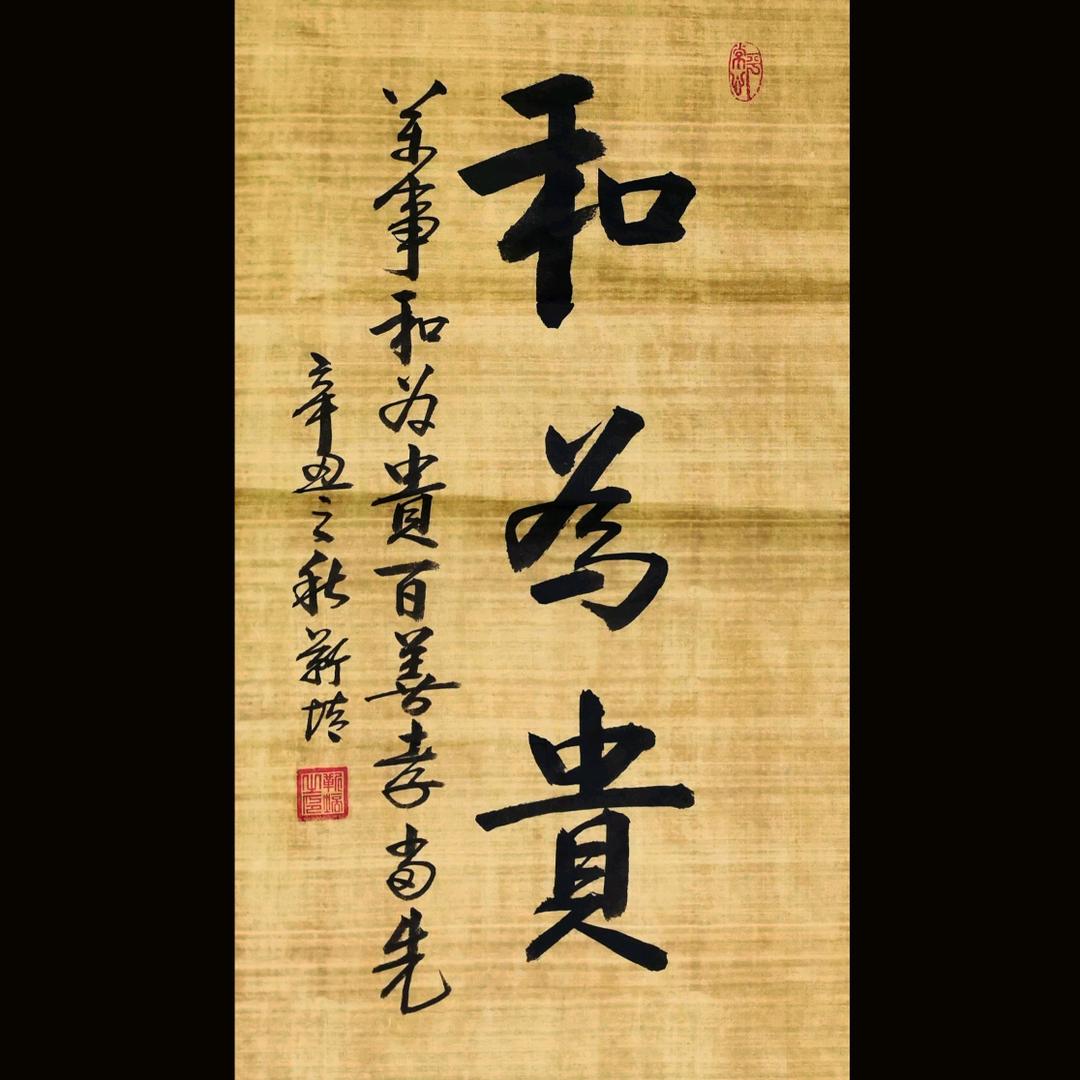 和為貴
萬事和為貴百善孝當先
辛丑之秋靳